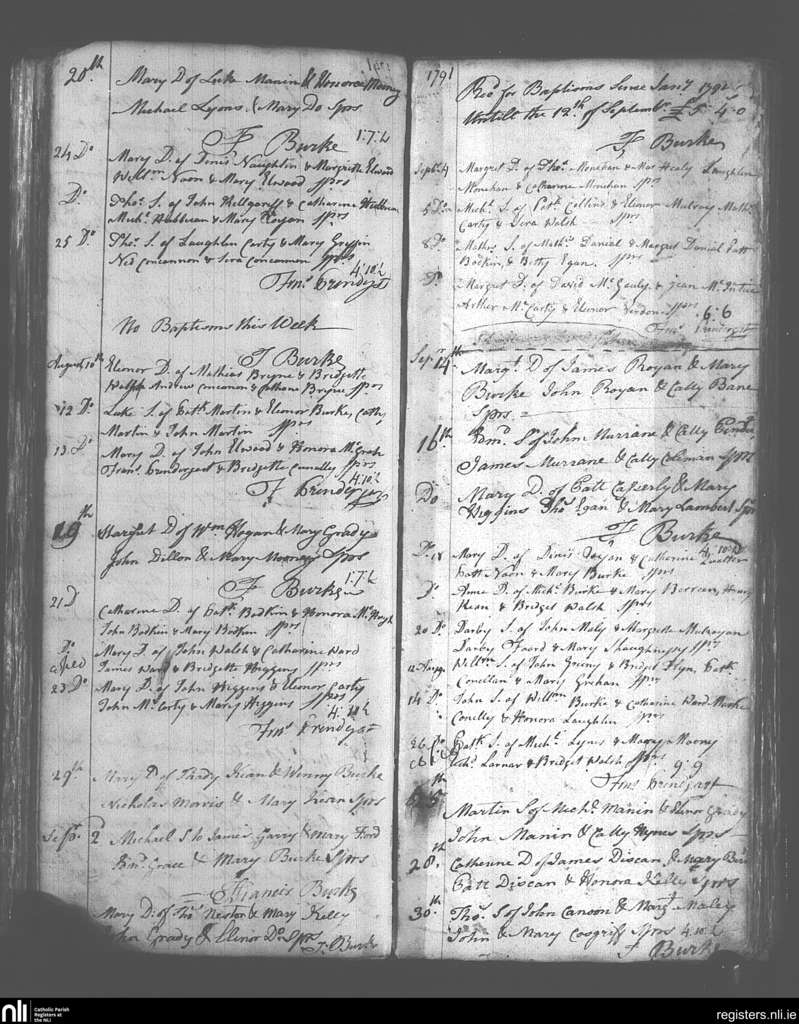 20th Mary D of Luke Manin & Honora Mooney
Michael Lyons, & Mary Do Sprs
F Burke 1:7:½
24 Do Mary D. of Denis Naughtin & Margrett Elwood
Willm Naon & Mary Elwood Sprs
Do Thos S. of John Killgariff & Catharine
Michl & Mary Royan Sprs
25 Do Thos S. of Laughlin Carty & Mary Griffin
Ned Concannon & Sera Concannon Sprs
4:10½
Frans Prendergst
No Baptisms this Week
F Burke
August 10th Eleonor D. of Mathias Bryne & Bridgette
Walsh Andrew Concannon & Catharne Bryne Sprs
12 Do Luke S. of Patk Martin & Eleonor Burke, Cathe
Martin & John Martin Sprs
13 Do Mary D. of John Elwood & Honora McGrah
Frans Prendergast & Bridgette Conelly Sprs
4:10½
F Prendergast
19th Margret D of Wm Hogan & Mary Grady
John Dillon & Mary Mooney Sprs
1:7:½
F Burke
21 D Catharine D. of Patk Bodkin & Honora McHugh
John Bodkin & Mary Bodkin Sprs
Do Mary D. of John Walsh & Catharine Ward
James Ward & Bridgette Higgins Sprs
23 Do Mary D. of John Higgins & Eleonor Carty
John McCarty & Mary Higgins Sprs
4:10½
Frans Prendergast
29th Mary D of Thady Kean & Winny Burke
Nicholas Morris & Mary Kean Sprs
Sepr 2 Michael S to James Garry & Mary Ford
Edmd Grace & Mary Burke Sprs
Francis Burke
Mary D. of Thos Neston & Mary Kelly
John Grady & Elinor Do Sprs F. Burke
1791 Recd for Baptisms Since Jany 1791
Untill the 12th of Septembr £ 5 4:0
F Burke
Septr 4 Margret D. of Thos Monehan & Mary Healy Laughlin
Monehan & Catharine Monehan Sprs
5 Do Michl S. of Patk Collins & Eleonor Mulroy Mathw
Carty & Sera Walsh Sprs
8 Do Mathw S. of Mathw Daniel & Margret Daniel Patt
Bodkin, & Betty Egan. Sprs
Do Margret D. of David McGauly & Jean
Arther McCarty & Eleonor Sprs
6:6
Frans Prendergast
Sepr 14th Margt D of James Royan & Mary
Burke John Royan & Catty Bane
Sprs
16th Edmd S of John Murrane & Catty
James Murrane & Catty Coleman Sprs
Do Mary D. of Patt Caherly & Mary
Higgins Thos Egan & Mary Lambert Sprs
F Burke
Mary D. of Denis & Catharine
Patt Naon & Mary Burke Sprs
Do Anne D. of Michl Burke & Mary Henry
Hean & Bridget Walsh Sprs
20 Do Darby S. of John Maly & Margrette Mulroyan
Darby Foard & Mary Shaughnessy Sprs
Willm S. of John Greeny & Bridget Flyn, Patk
Conellan & Mary Grehan Sprs
14 Do John S. of Willm Burke & Catharine Ward
Conelly & Honora Laughlin Sprs
26 Do Patk S. of Michl Lynes & Mary Moony
Larnar & Bridget Walsh Sprs
9:9
Frans Prendergast
Martin S of Michl Manin & Elinor Grady
John Manin & Catty Hynes Sprs
28th Catherine D of James Discan & Mary
Patt Discan & Honora Kelly Sprs
30th Thos S of John Canoon & Mary Maley
John & Mary Cosgriff Sprs 4:10½
F Burke
nli Catholic Parish
Registers at
the NLI
registers.nli.ie